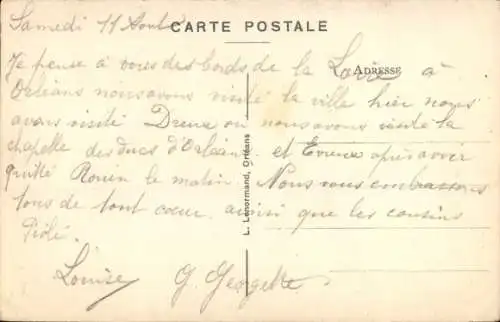 Samedi 11 Août
CARTE POSTALE
ADRESSE
Je pense à vous des bords de la Loire à
Orléans nous avons visité la ville hier nous
avons visité Dreux ou nous avons visité la
chapelle des ducs d'Orléans et Evreux après avoir
quitté Rouen le matin. Nous vous embrassons
tous de tout coeur ainsi que les cousins
Louise G. Georgette
L. Lenormand, Orléans